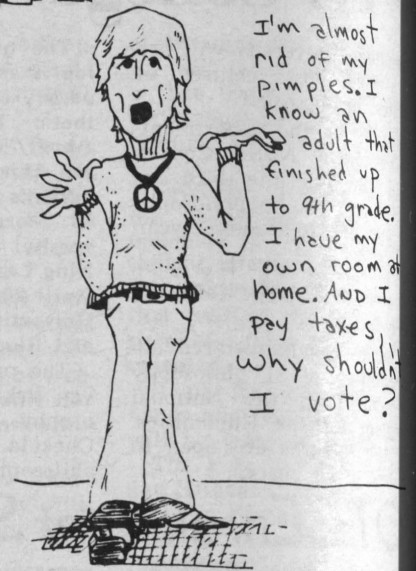 I'm almost
rid of my
pimples. I
know an
adult that
finished up
to 9th grade.
I have my
own room at
home. AND I
pay taxes,
why shouldn't
I vote?